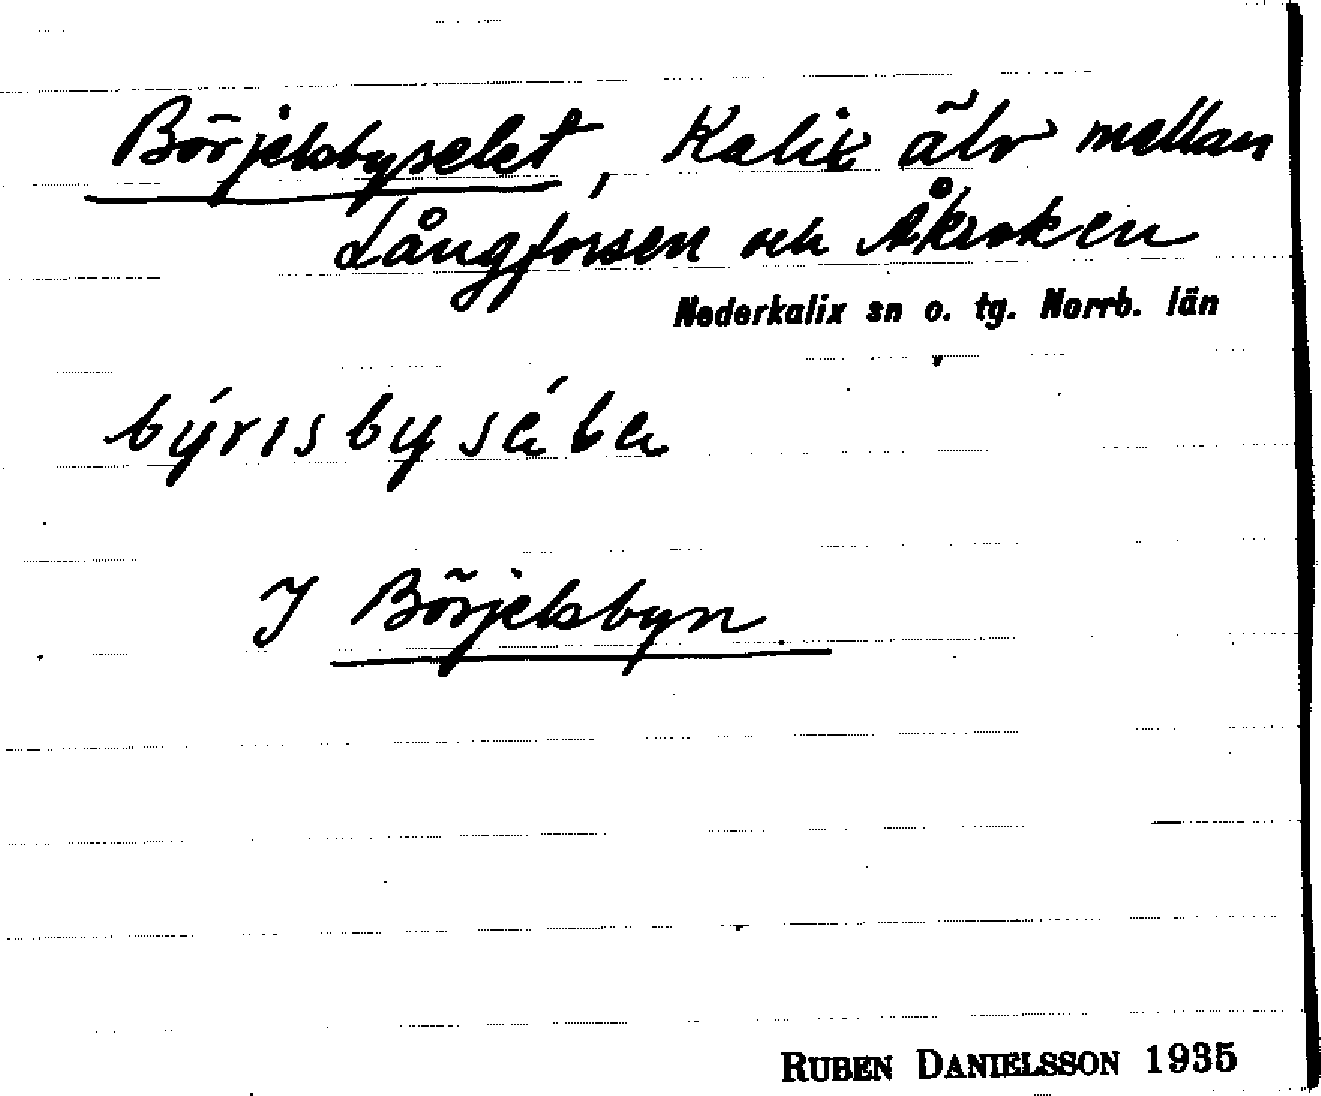 Börjelsbyselet, Kalix älv mellan
Långforsen och Åkroken
Nederkalix sn o. tg. Norrb. län
I Börjelsbyn
RUBEN DANIELSSON 1935